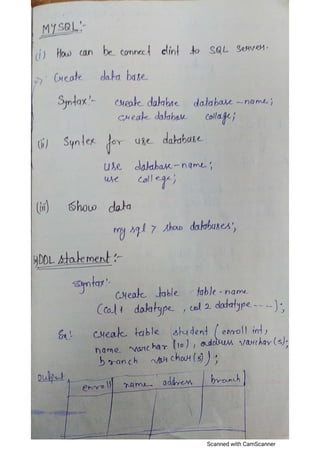 MYSQL:-
(i) How can be connect clint to SQL server.
=> Create data base
Syntax:- create databse database-name;
create database collage;
(ii) Syntex for use database
use database-name;
use college;
(iii) Show data
my sql > show databases;
DDL statement:-
Syntax:-
Create table table-name
(col 1 datatype, col 2 datatype ----);
Ex: create table student (enroll int,
name varchar (10), address varchar (5),
branch varchar (5));
Output
enroll name address branch
Scanned with CamScanner